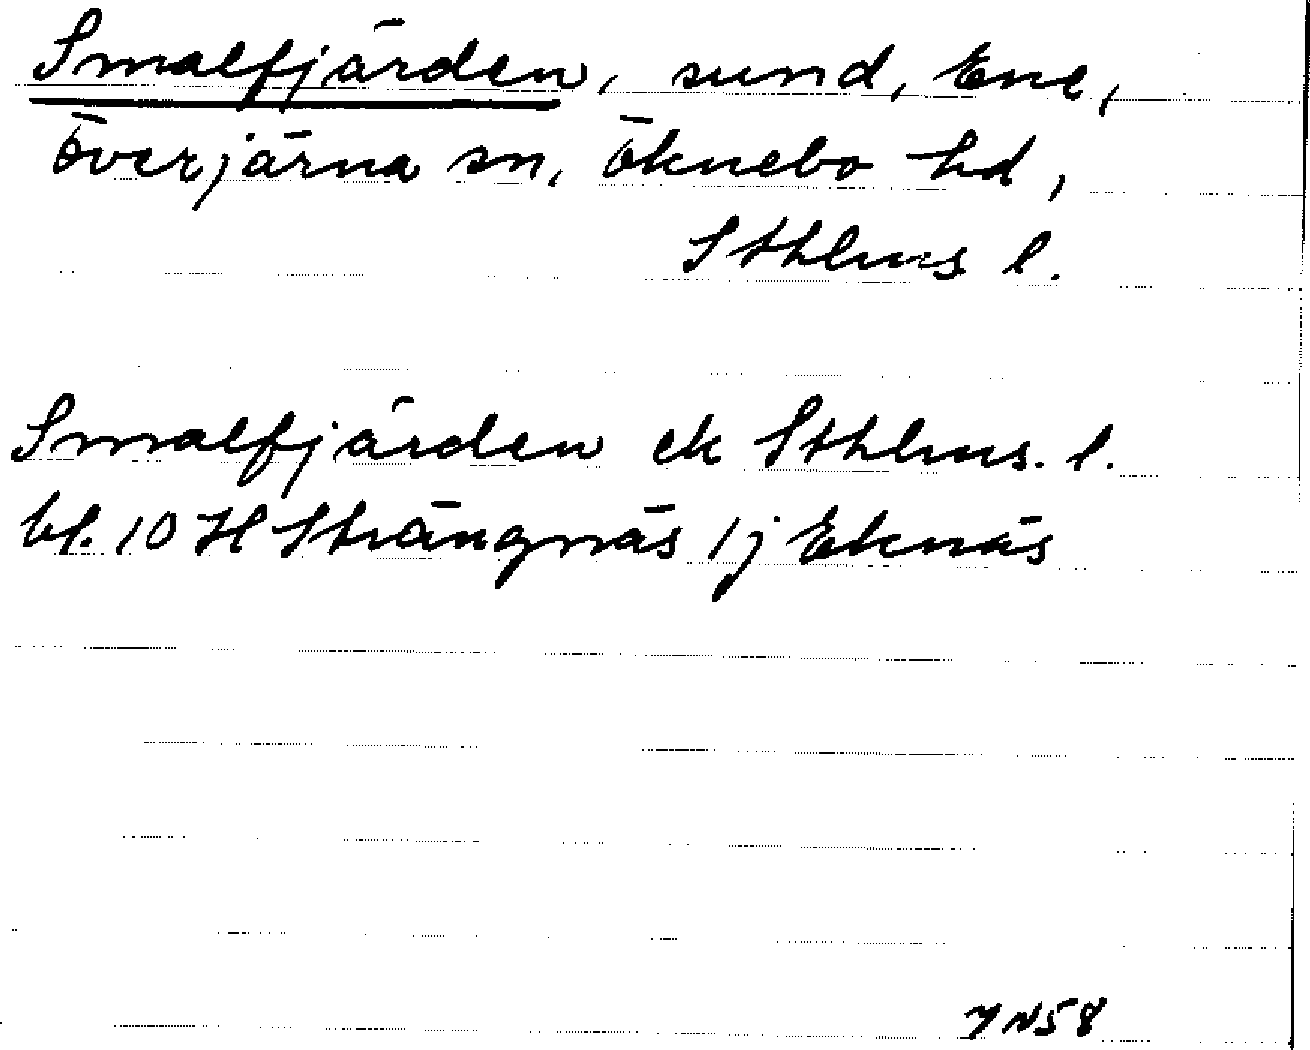 Smalfjärden, sund, Ene,
Överjärna sn, Öknebo hd,
Sthlms l.
Smalfjärden ek Sthlms. l.
bl. 10 H Strängnäs 1j Eknäs